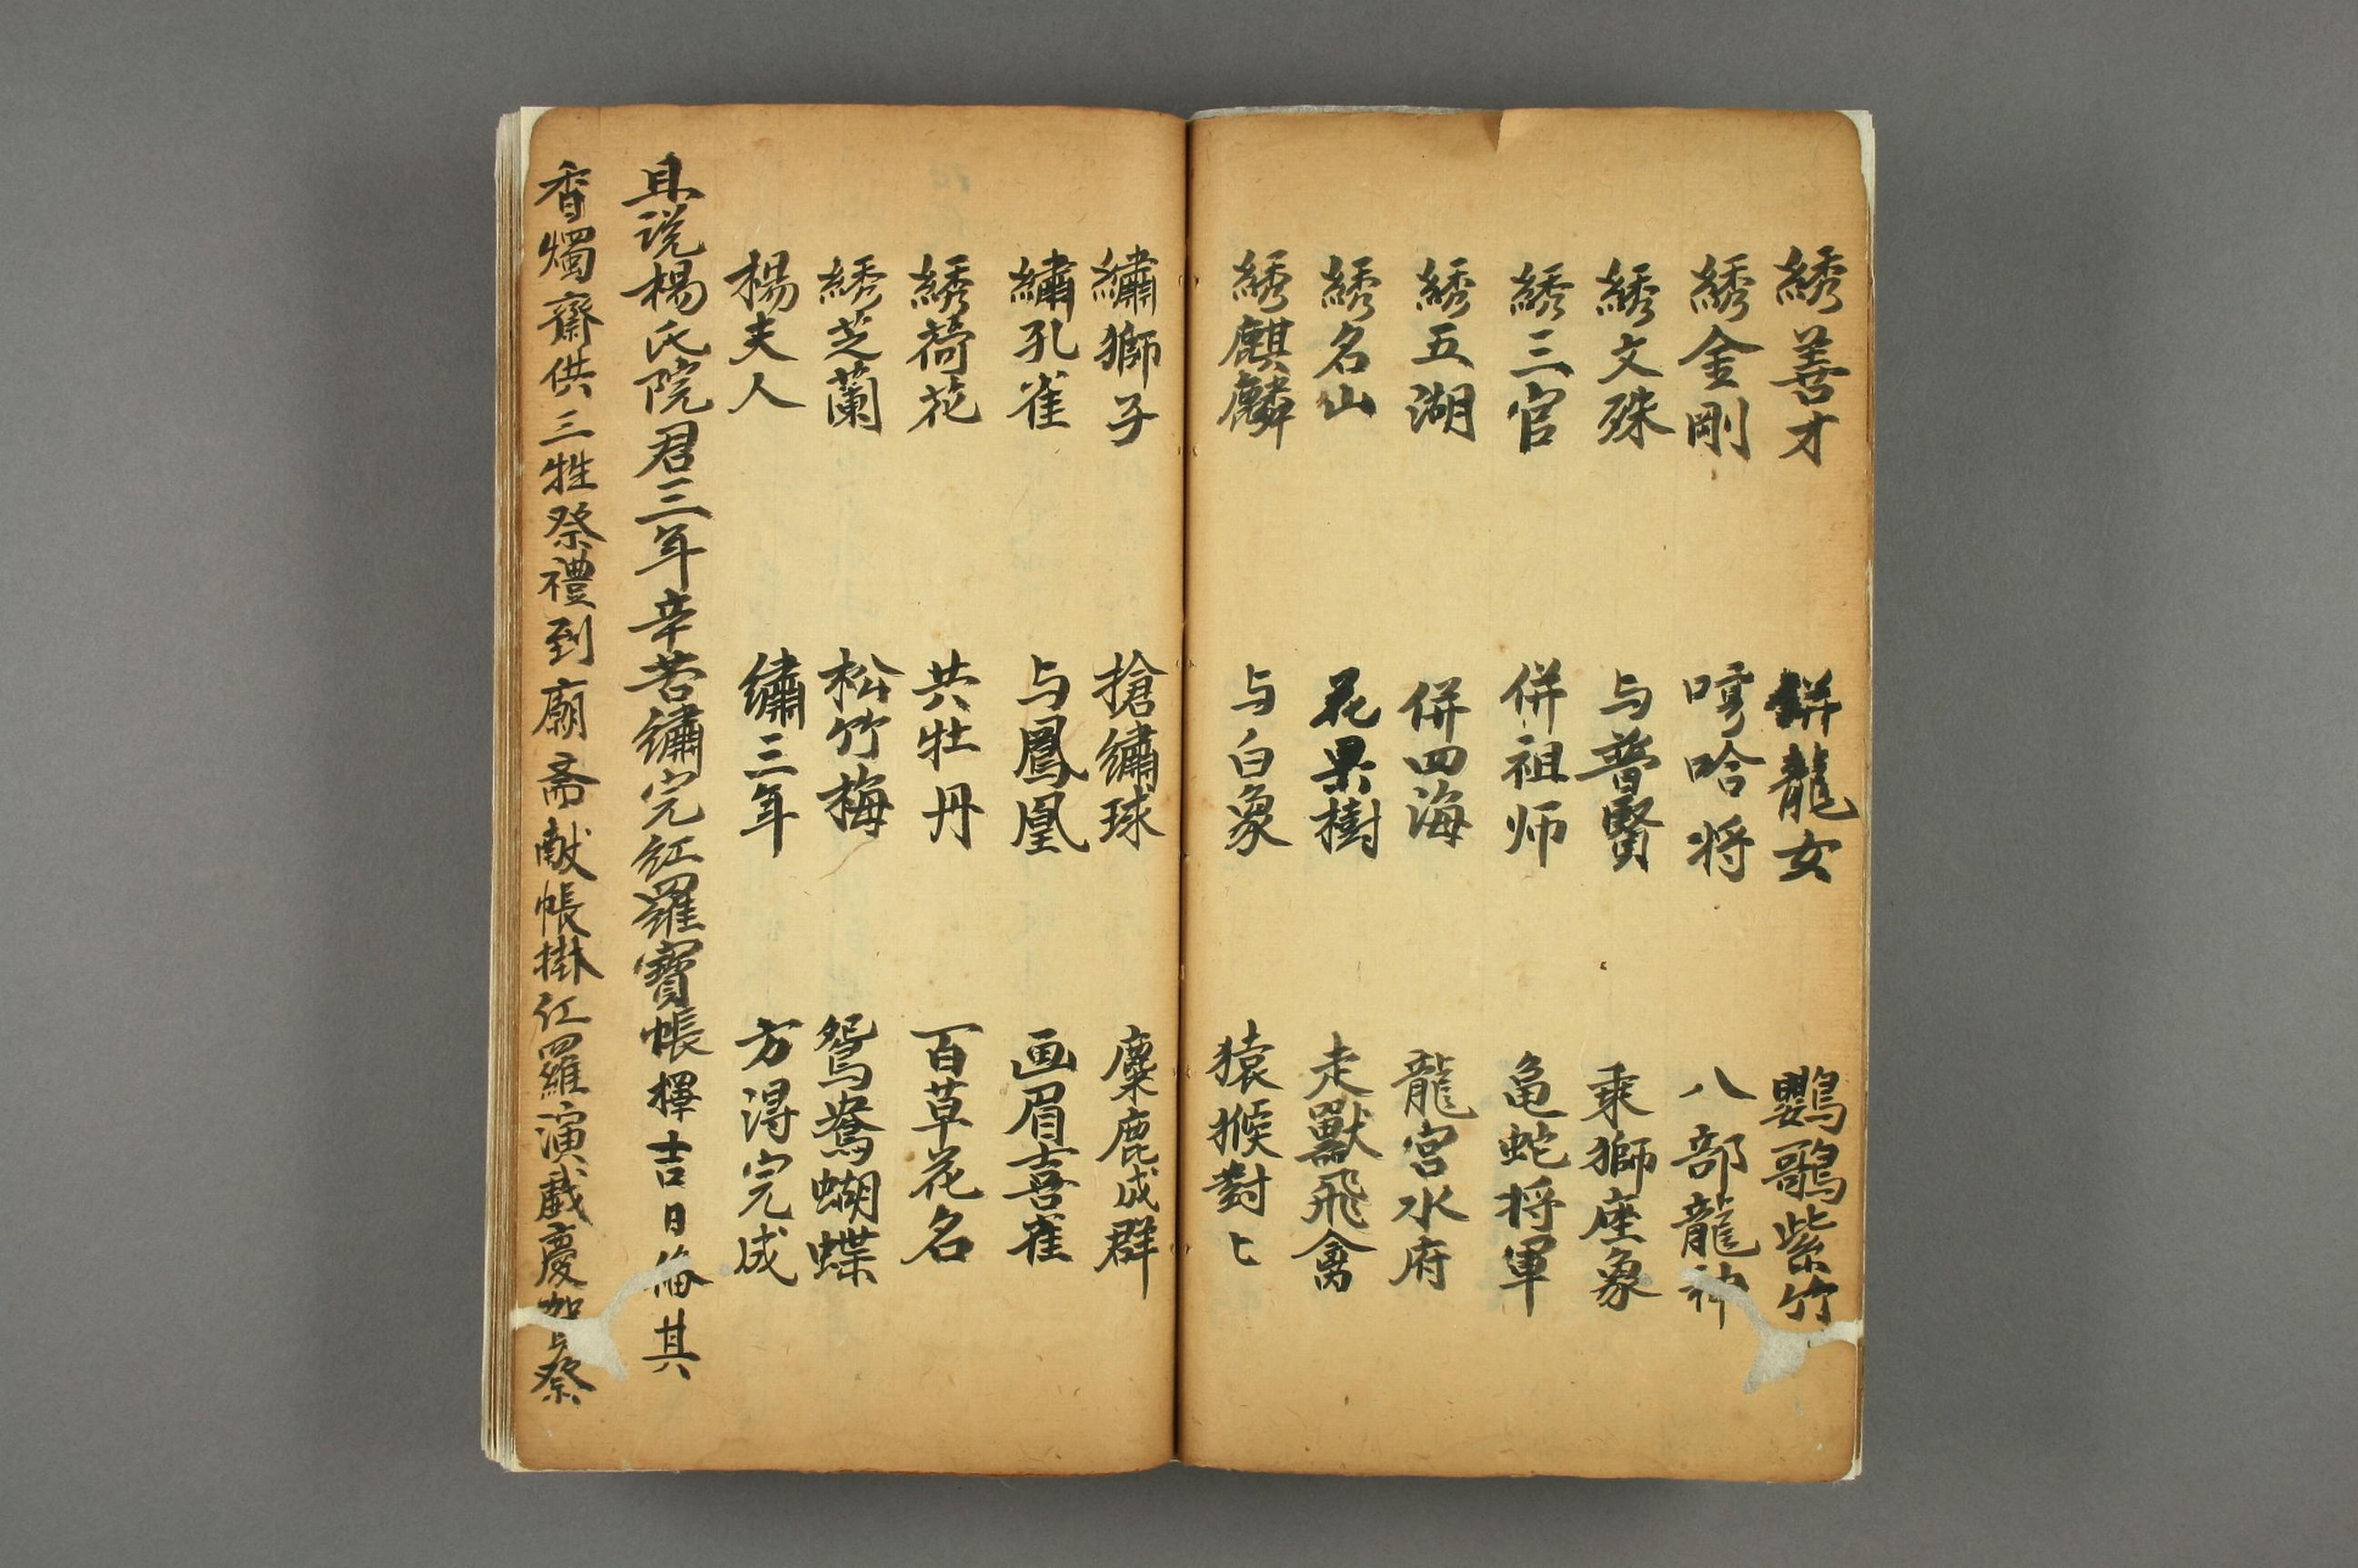 綉善才 併龍女 鸚鵡紫竹
綉金剛 哼哈将 八部龍神
綉文殊 与普賢 乘獅座象
綉三官 併祖师 亀蛇将軍
綉五湖 併四海 龍宮水府
綉名山 花果樹 走獸飛禽
綉麒麟 与白象 猿猴對匕
繡獅子 搶繡球 麋鹿成群
繡孔雀 与鳳凰 画眉喜雀
綉荷花 共牡丹 百草花名
綉芝蘭 松竹梅 鴛鴦蝴蝶
楊夫人 繡三年 方得完成
且说楊氏院君三年辛苦繡完紅羅寶帳擇吉日俻其
香燭齋供三牲祭禮到廟斋献帳掛红羅演戯慶賀与祭